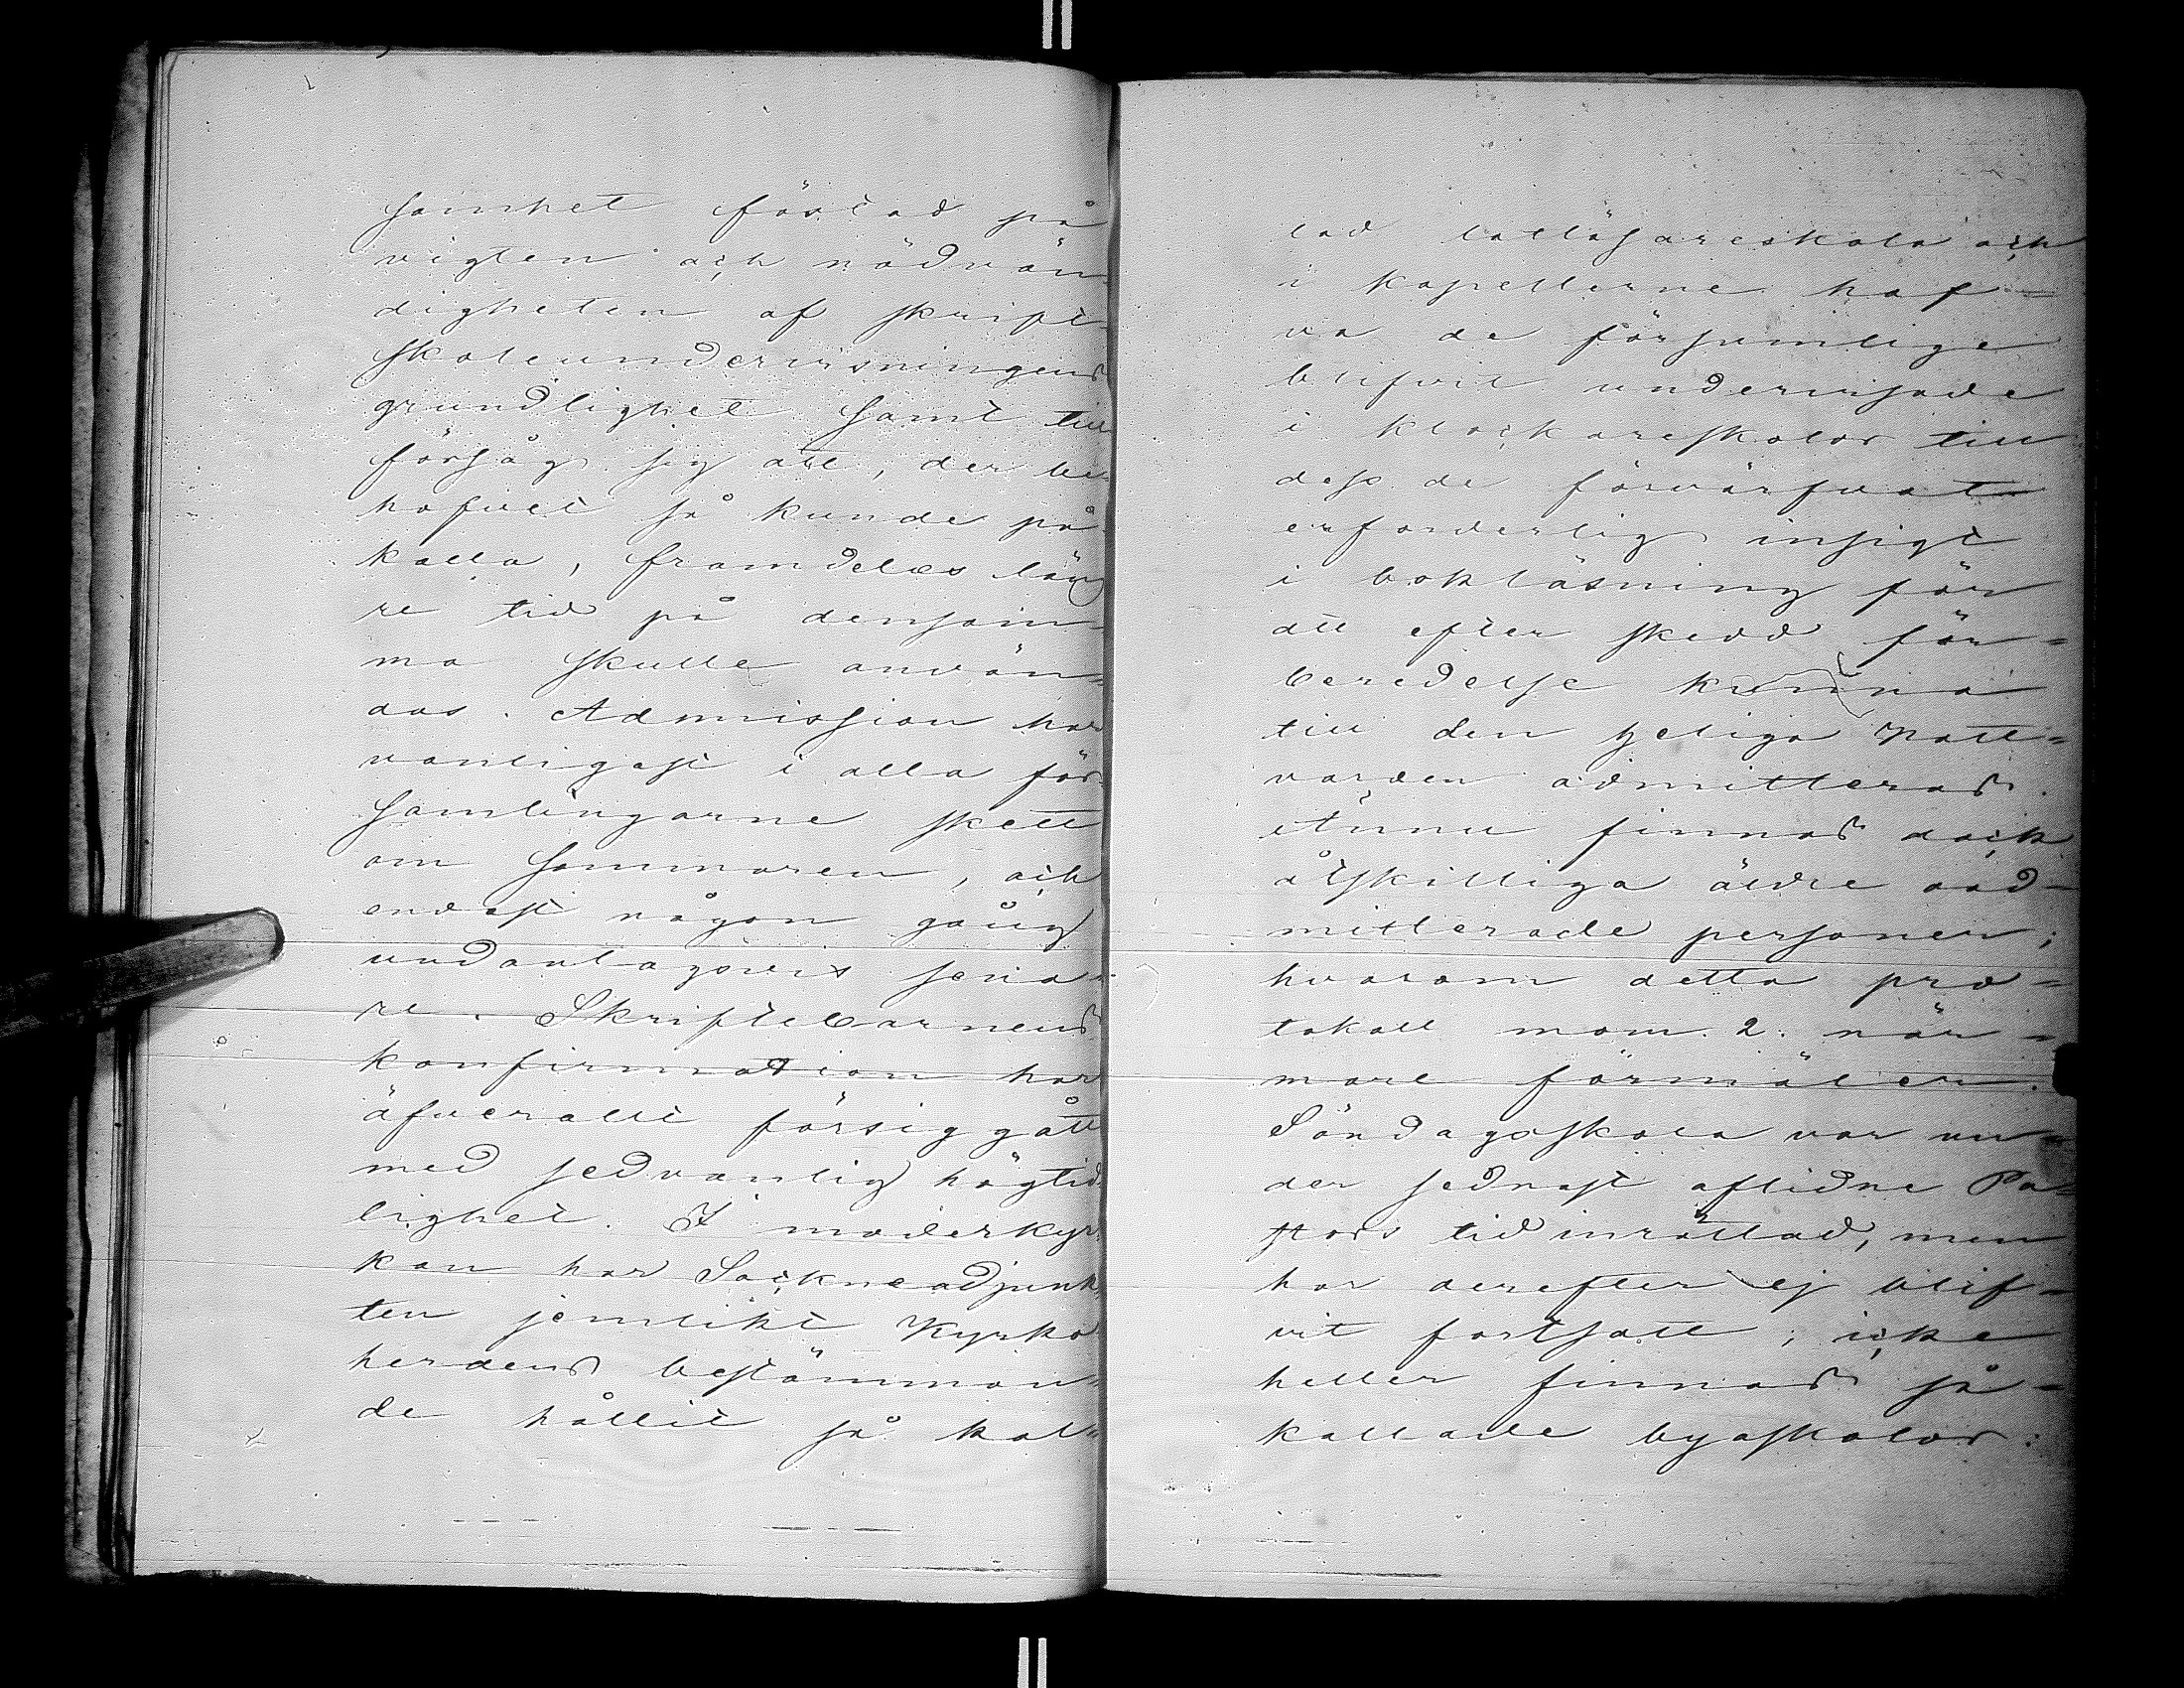 samhet fästad på
vigten och nödvän-
digheten af skript-
skoleundervisningens
grundlighet samt till
försåg sig att, der be-
hofvet så kunde på-
kalla, framdeles läng
re tid på densam-
ma skulle använ-
das. Admission har
vanligast i alla för-
samlingarne skett
om sommaren, och
endast någon gång
undantagsvis sena-
re. Skriftebarnens
konfirmation har
äfverallt försiggått
med sedvanlig högtid-
lighet. I moderkyr-
kan har Sockneadjunk-
ten jemlikt Kyrko-
herdens bestämman-
de hållit så kal-
lad lattläsareskola och
i kapellerne haf-
va de försumlige
blifvit undervisade
i klockareskolor till
dess de förvärfvat
erforderlig insigt
i bokläsning för
att efter skedd för-
beredelse kunna
till den heliga Natt-
varden admitteras.
Ännu finnas dock
åtskilliga äldre oad-
mitterade personer;
hvarom detta pro-
tokoll mom. 2. när-
mare förmäler.
Söndagsskola var un-
der sednast aflidne Pa-
stors tid inrättad, men
har derefter ej blif-
vit fortsatt; icke
heller finnas så-
kallade byaskolor: